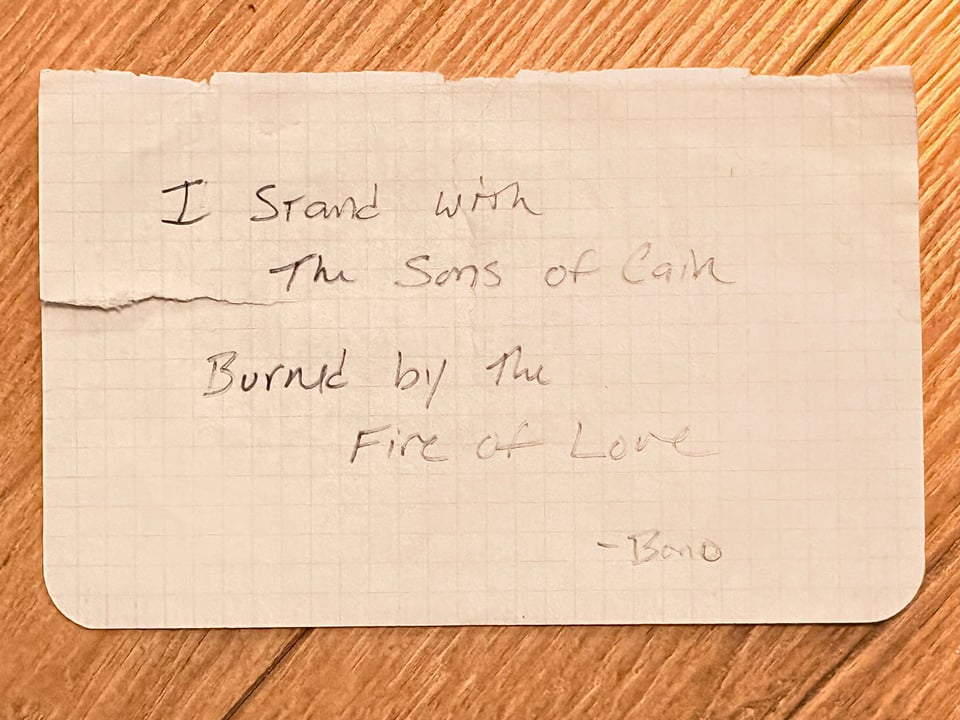 I Stand with
The Sons of Cain
Burned by the
Fire of Love
- Bono